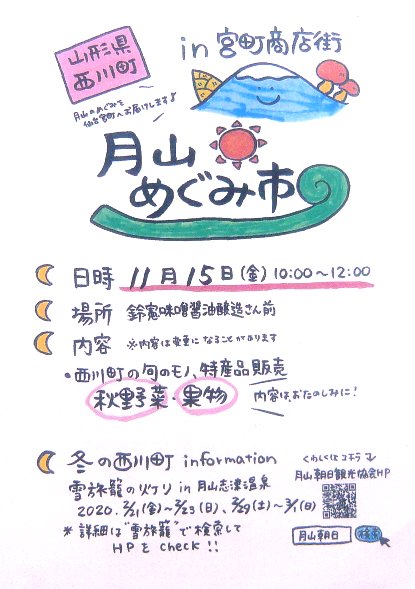 山形県
西川町
in 宮町商店街
月山のめぐみを
仙台宮町へお届けします♪
月山
めぐみ市
日時 11月15日(金) 10:00～12:00
場所 鈴憲味噌醤油醸造さん前
内容 ※内容は変更になることがあります
・西川町の旬のモノ、特産品販売
秋野菜・果物 内容はおたのしみに!
冬の西川町 information
くわしくはコチラ
雪旅籠の灯り in 月山志津温泉
月山朝日観光協会HP
2020. 2/21(金)～2/23(日)、2/29(土)～3/1(日)
＊詳細は"雪旅籠"で検索して
HPを check!!
月山朝日 検索